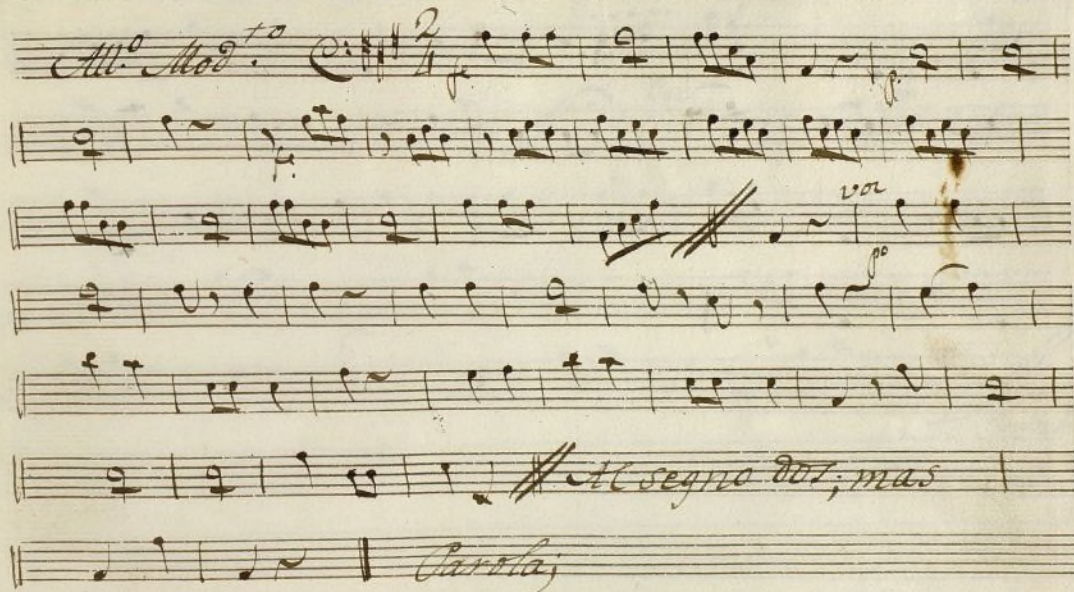 All.º Mod.to 2/4 fe
p.
fe.
voz
pº
Al segno dos; mas
Parola;